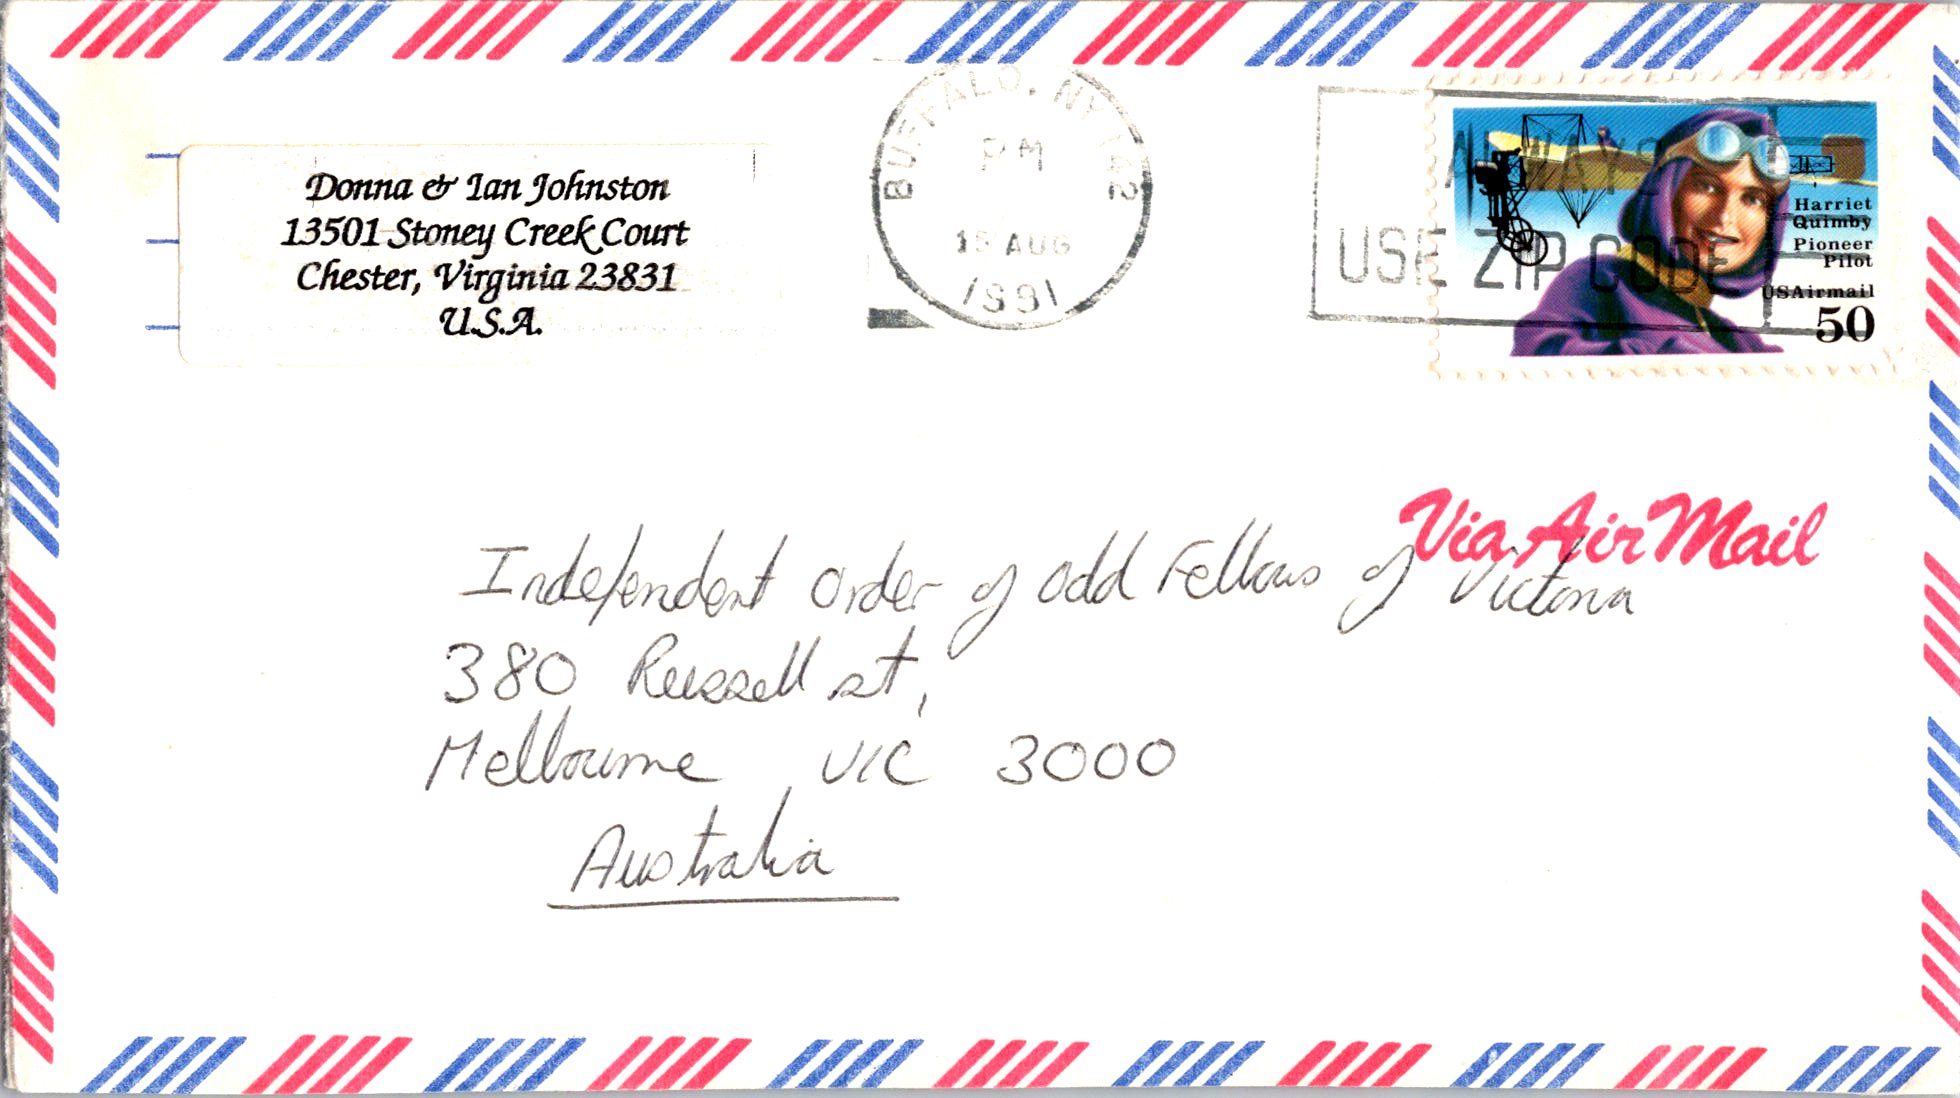 Donna & Ian Johnston
13501 Stoney Creek Court
Chester, Virginia 23831
U.S.A.
BUFFALO, NY 142
PM
15 AUG
1991
ALWAYS
USE ZIP CODE
Harriet
Quimby
Pioneer
Pilot
USAirmail
50
Via Air Mail
Independent Order of Odd Fellows of Victoria
380 Russell st,
Melbourne VIC 3000
Australia